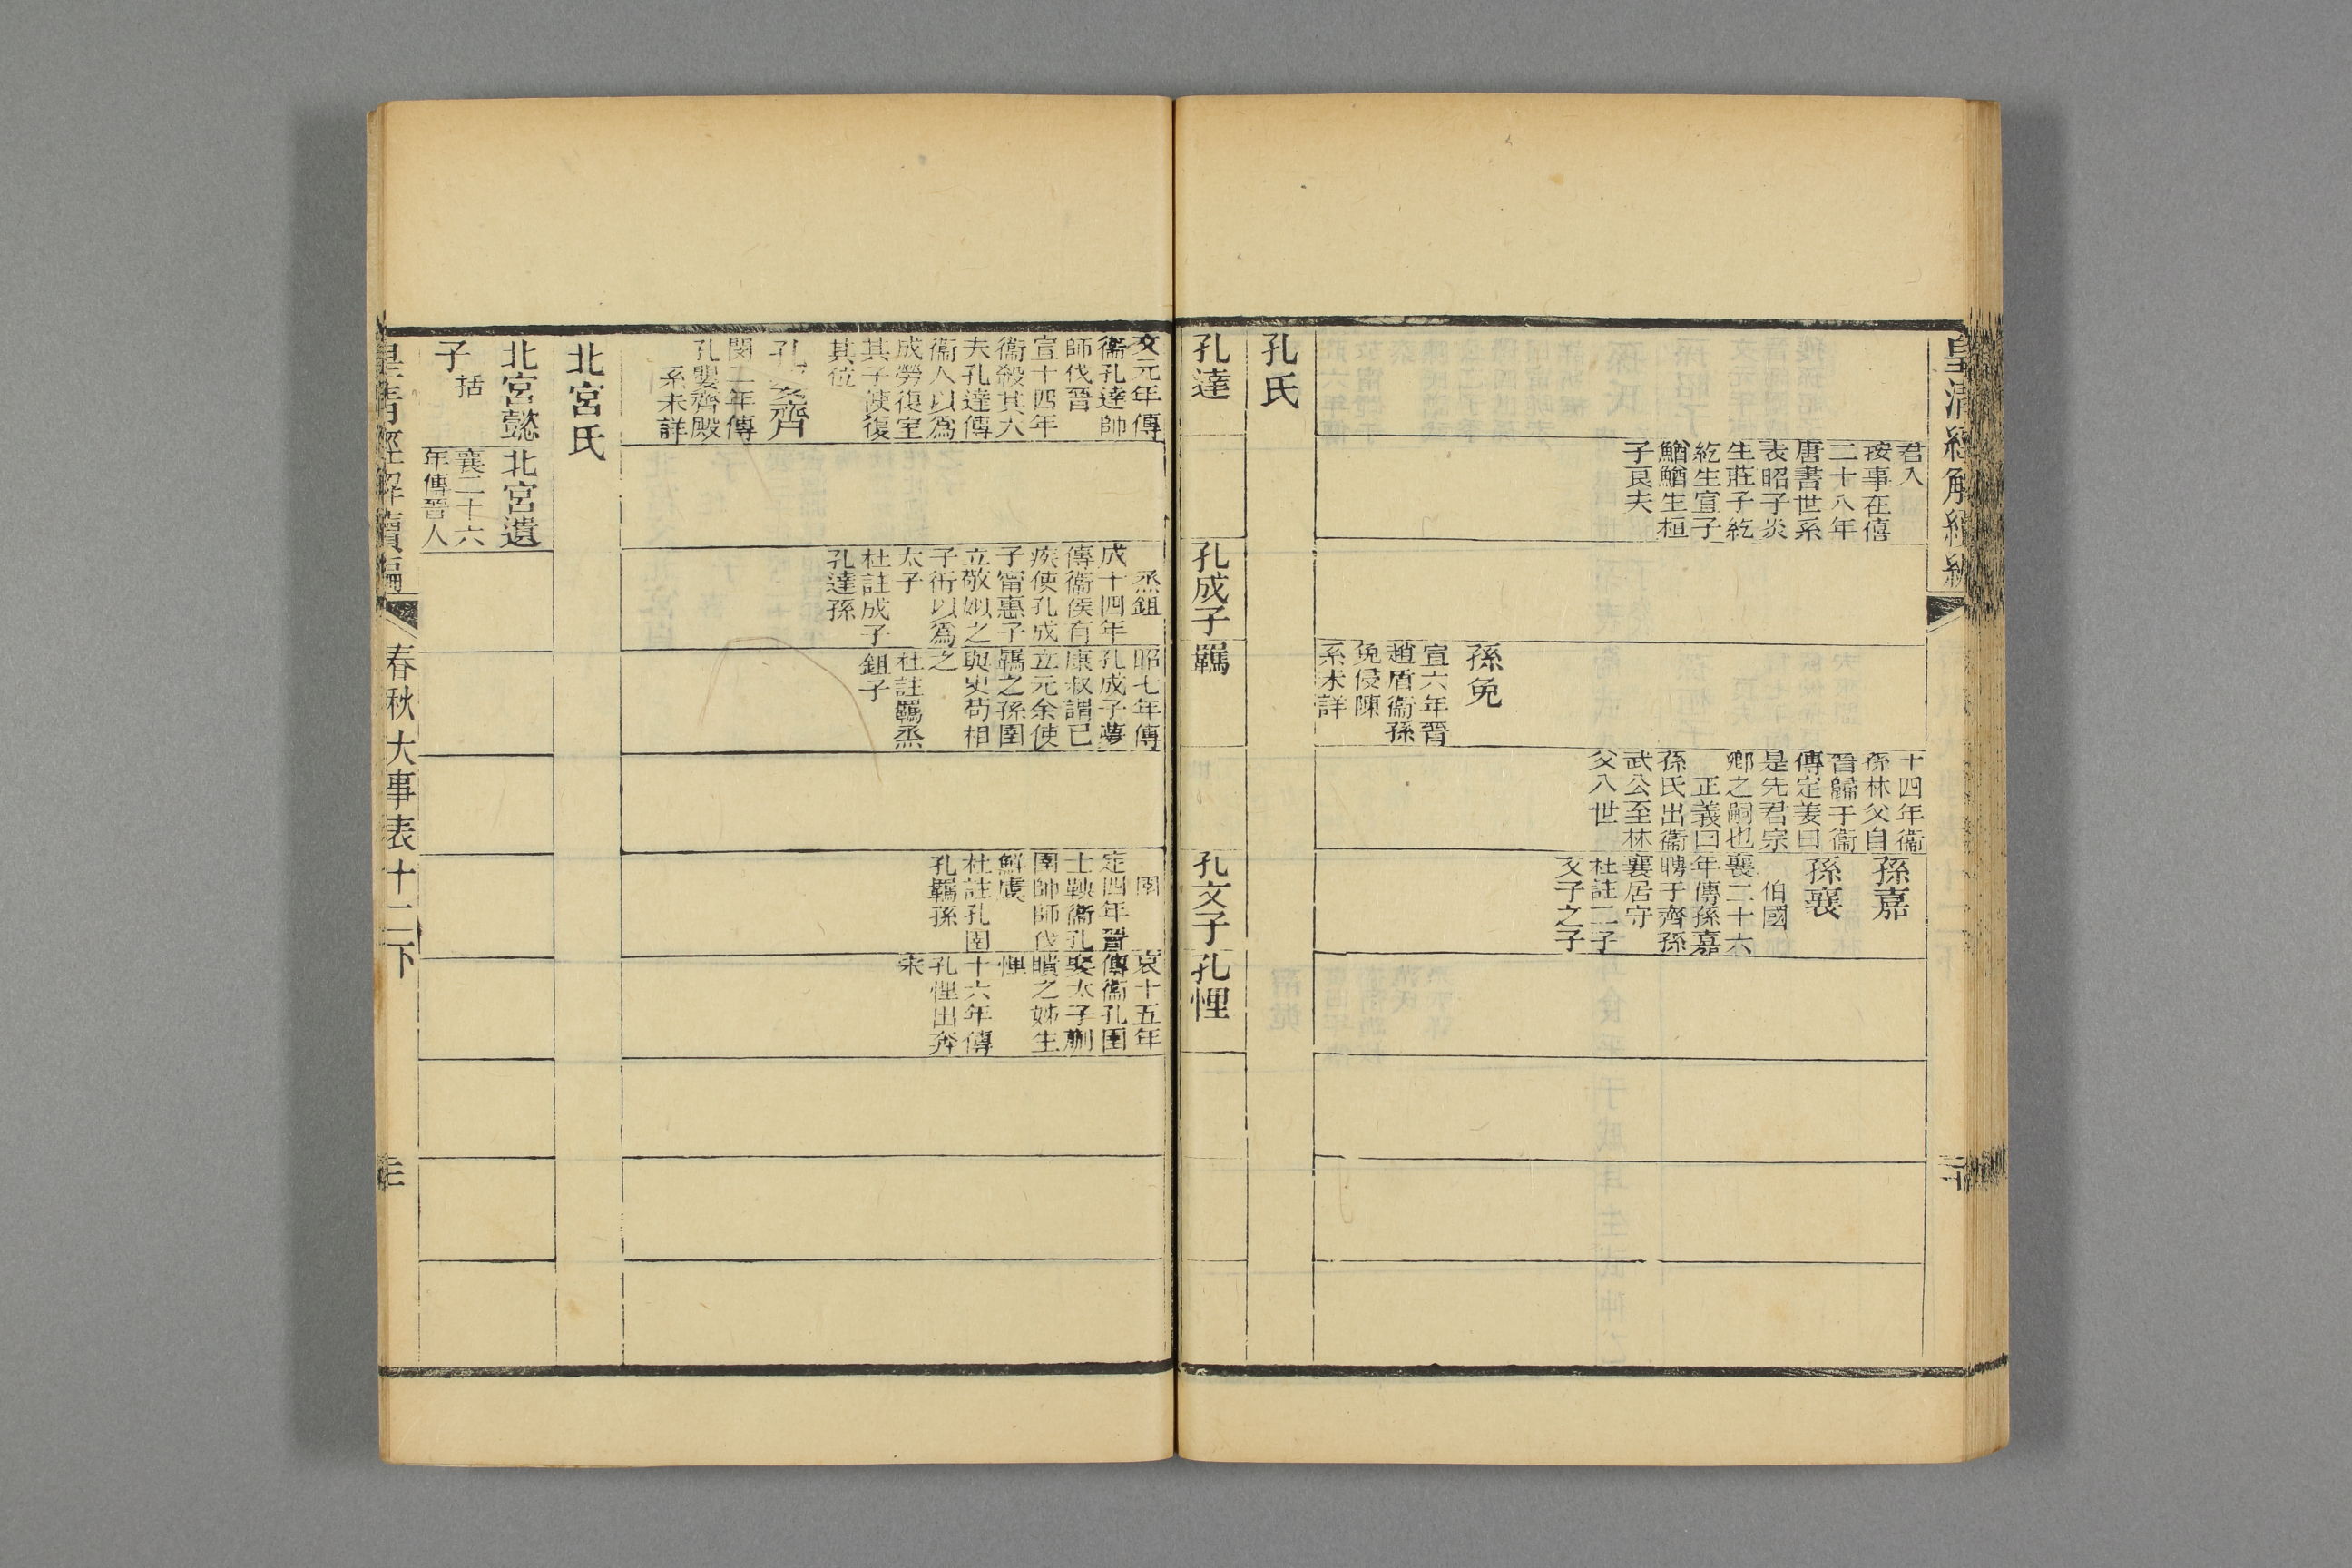 皇清經解續編
君入
按事在僖
二十八年
唐書世系
表昭子炎
生莊子紇
紇生宣子
鰌鰌生桓
子良夫
孫免
宣六年晉
趙盾衞孫
免侵陳
系未詳
十四年衞
孫林父自
晉歸于衞
傳定姜曰
是先君宗
卿之嗣也
正義曰
孫氏出衞
武公至林
父八世
孫嘉
孫襄
伯國
襄二十六
年傳孫嘉
聘于齊孫
襄居守
杜註二子
文子之子
孔氏
孔達
孔成子
羈
孔文子
孔悝
文元年傳
衞孔達帥
師伐晉
宣十四年
衞殺其大
夫孔達傳
衞人以爲
成勞復室
其子使復
其位
孔嬰齊
閔二年傳
孔嬰齊殿
系未詳
烝鉏
成十四年
傳衞侯有
疾使孔成
子甯惠子
立敬姒之
子衎以爲
太子
杜註成子
孔達孫
昭七年傳
孔成子夢
康叔謂己
立元余使
羈之孫圉
與史苟相
之
杜註羈烝
鉏子
圉
定四年晉
士鞅衞孔
圉帥師伐
鮮虞
杜註孔圉
孔羈孫
哀十五年
傳衞孔圉
娶太子蒯
聵之姊生
悝
十六年傳
孔悝出奔
宋
北宮氏
北宮懿
子
括
北宮遺
襄二十六
年傳晉人
皇清經解續編
春秋大事表十二下